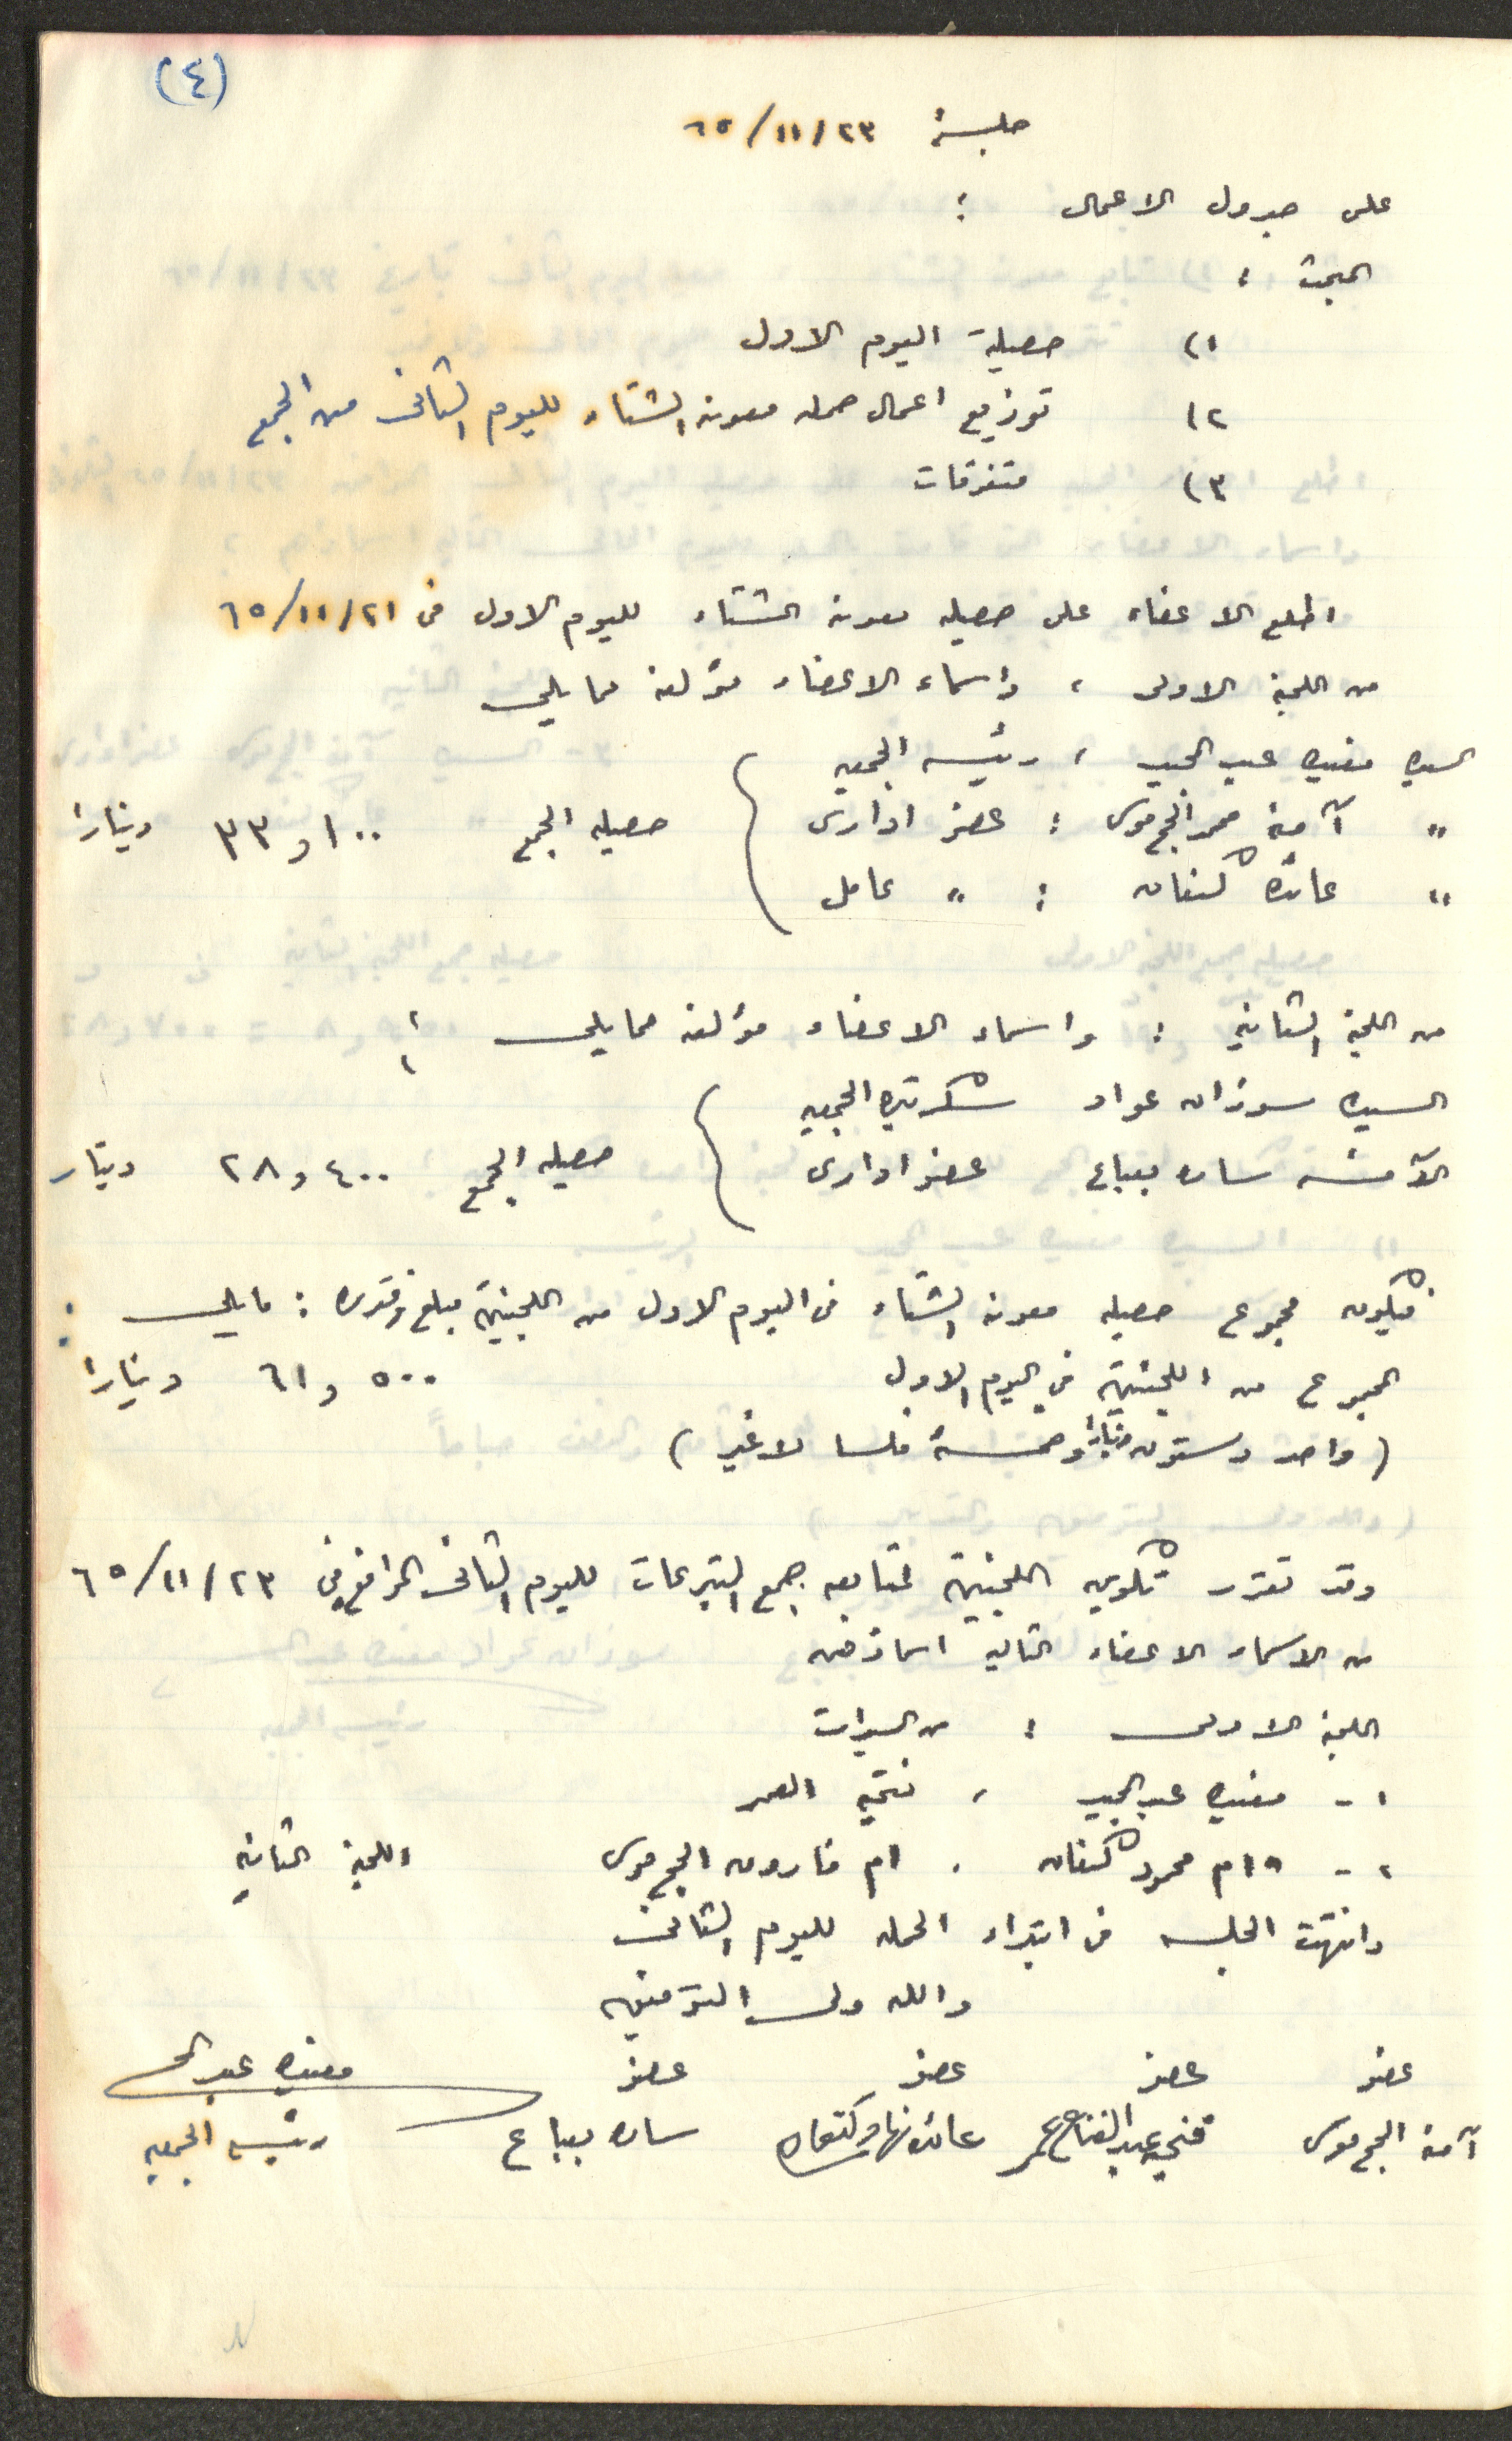 (٤)
جلسة ٢٣/١١/٦٥
على جدول الاعمال :
البحث :
١) حصيلة اليوم الاول
٢) توزيع اعمال حمله معونه الشتاء لليوم الثاني من الجمع
٣) متفرقات
اطلع الاعضاء على حصيله معونه الشتاء لليوم الاول في ٢١/١١/٦٥
من اللجنة الاولى ، واسماء الاعضاء مؤلفه مما يلي
السيده مفيده عبد المجيد ، رئيسه الجمعيه
" آمنة محمد الحج موسى : عضو ادارى حصيله الجمع ١٠٠ و ٣٣ دينارا
" عائده كنعان : " عامل
من اللجنة الثانيه : واسماء الاعضاء مؤلفه مما يلي :
السيده سوزان عواد سكرتيره الجمعيه
الآنسه ساره بيباع عضو ادارى حصيله الجمع ٤٠٠ و ٢٨ دينار
فيكون مجموع حصيله معونه الشتاء في اليوم الاول من اللجنتين مبلغ وقدره : مايلي :
المجموع من اللجنتين في اليوم الاول ٥٠٠ و ٦١ دينارا
( واحد وستون دينارا وخمسة فلسا لاغير )
وقد تقرر تكوين اللجنتين لمتابعه جمع التبرعات لليوم الثاني الموافق في ٢٣/١١/٦٥
من الاسماء الاعضاء التاليه اسماؤهن
اللجنة الاولى : من السيدات
١ - مفيده عبد المجيد ، فتحيه العمر
٢ - ام محمود كنعان . ام فاروق الحج موسى اللجنة الثانيه
وانتهت الجلسه في ابتداء الحمله لليوم الثاني
والله ولي التوفيق
عضو عضو عضو عضو مفيده عبد المجيد
آمنة الحج موسى فتحيه عبد الفتاح عمر عائده نهاد كنعان ساره بيباع رئيسه الجمعيه